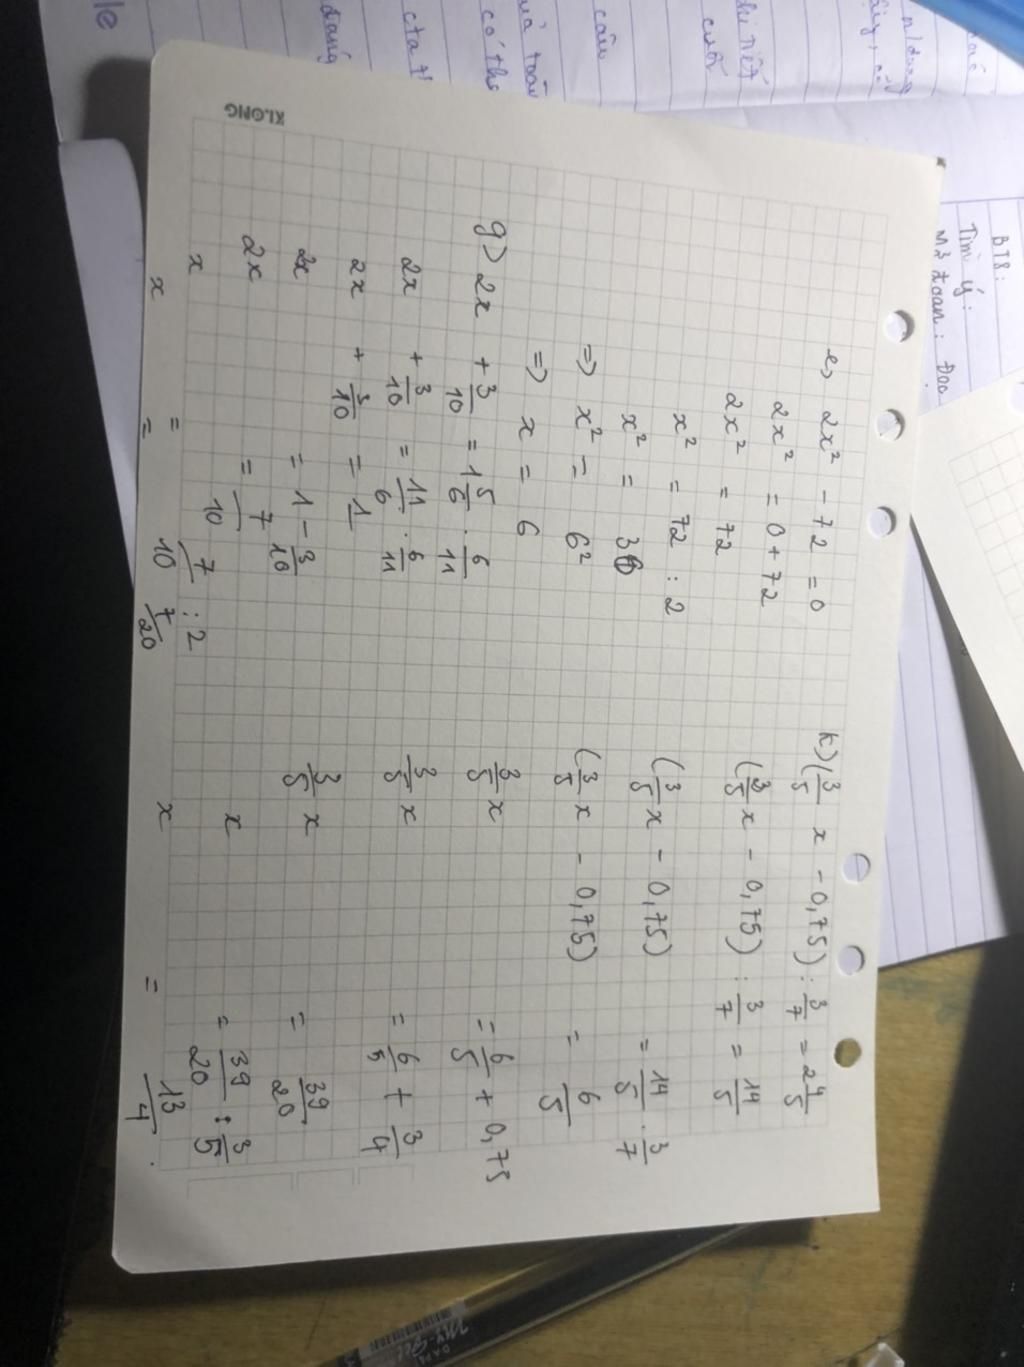 e, 2x² - 72 = 0
2x² = 0 + 72
2x² = 72
x² = 72 : 2
x² = 36
=> x² = 6²
=> x = 6
g) 2x + 3/10 = 1 5/6 . 6/11
2x + 3/10 = 11/6 . 6/11
2x + 3/10 = 1
2x = 1 - 3/10
2x = 7/10
x = 7/10 : 2
x = 7/20
k) (3/5 x - 0,75) : 3/7 = 2 4/5
(3/5 x - 0,75) : 3/7 = 14/5
(3/5 x - 0,75) = 14/5 . 3/7
(3/5 x - 0,75) = 6/5
3/5 x = 6/5 + 0,75
3/5 x = 6/5 + 3/4
3/5 x = 39/20
x = 39/20 : 3/5
x = 13/4
KLONG
BT8:
Tìm ý:
Mở đoạn: